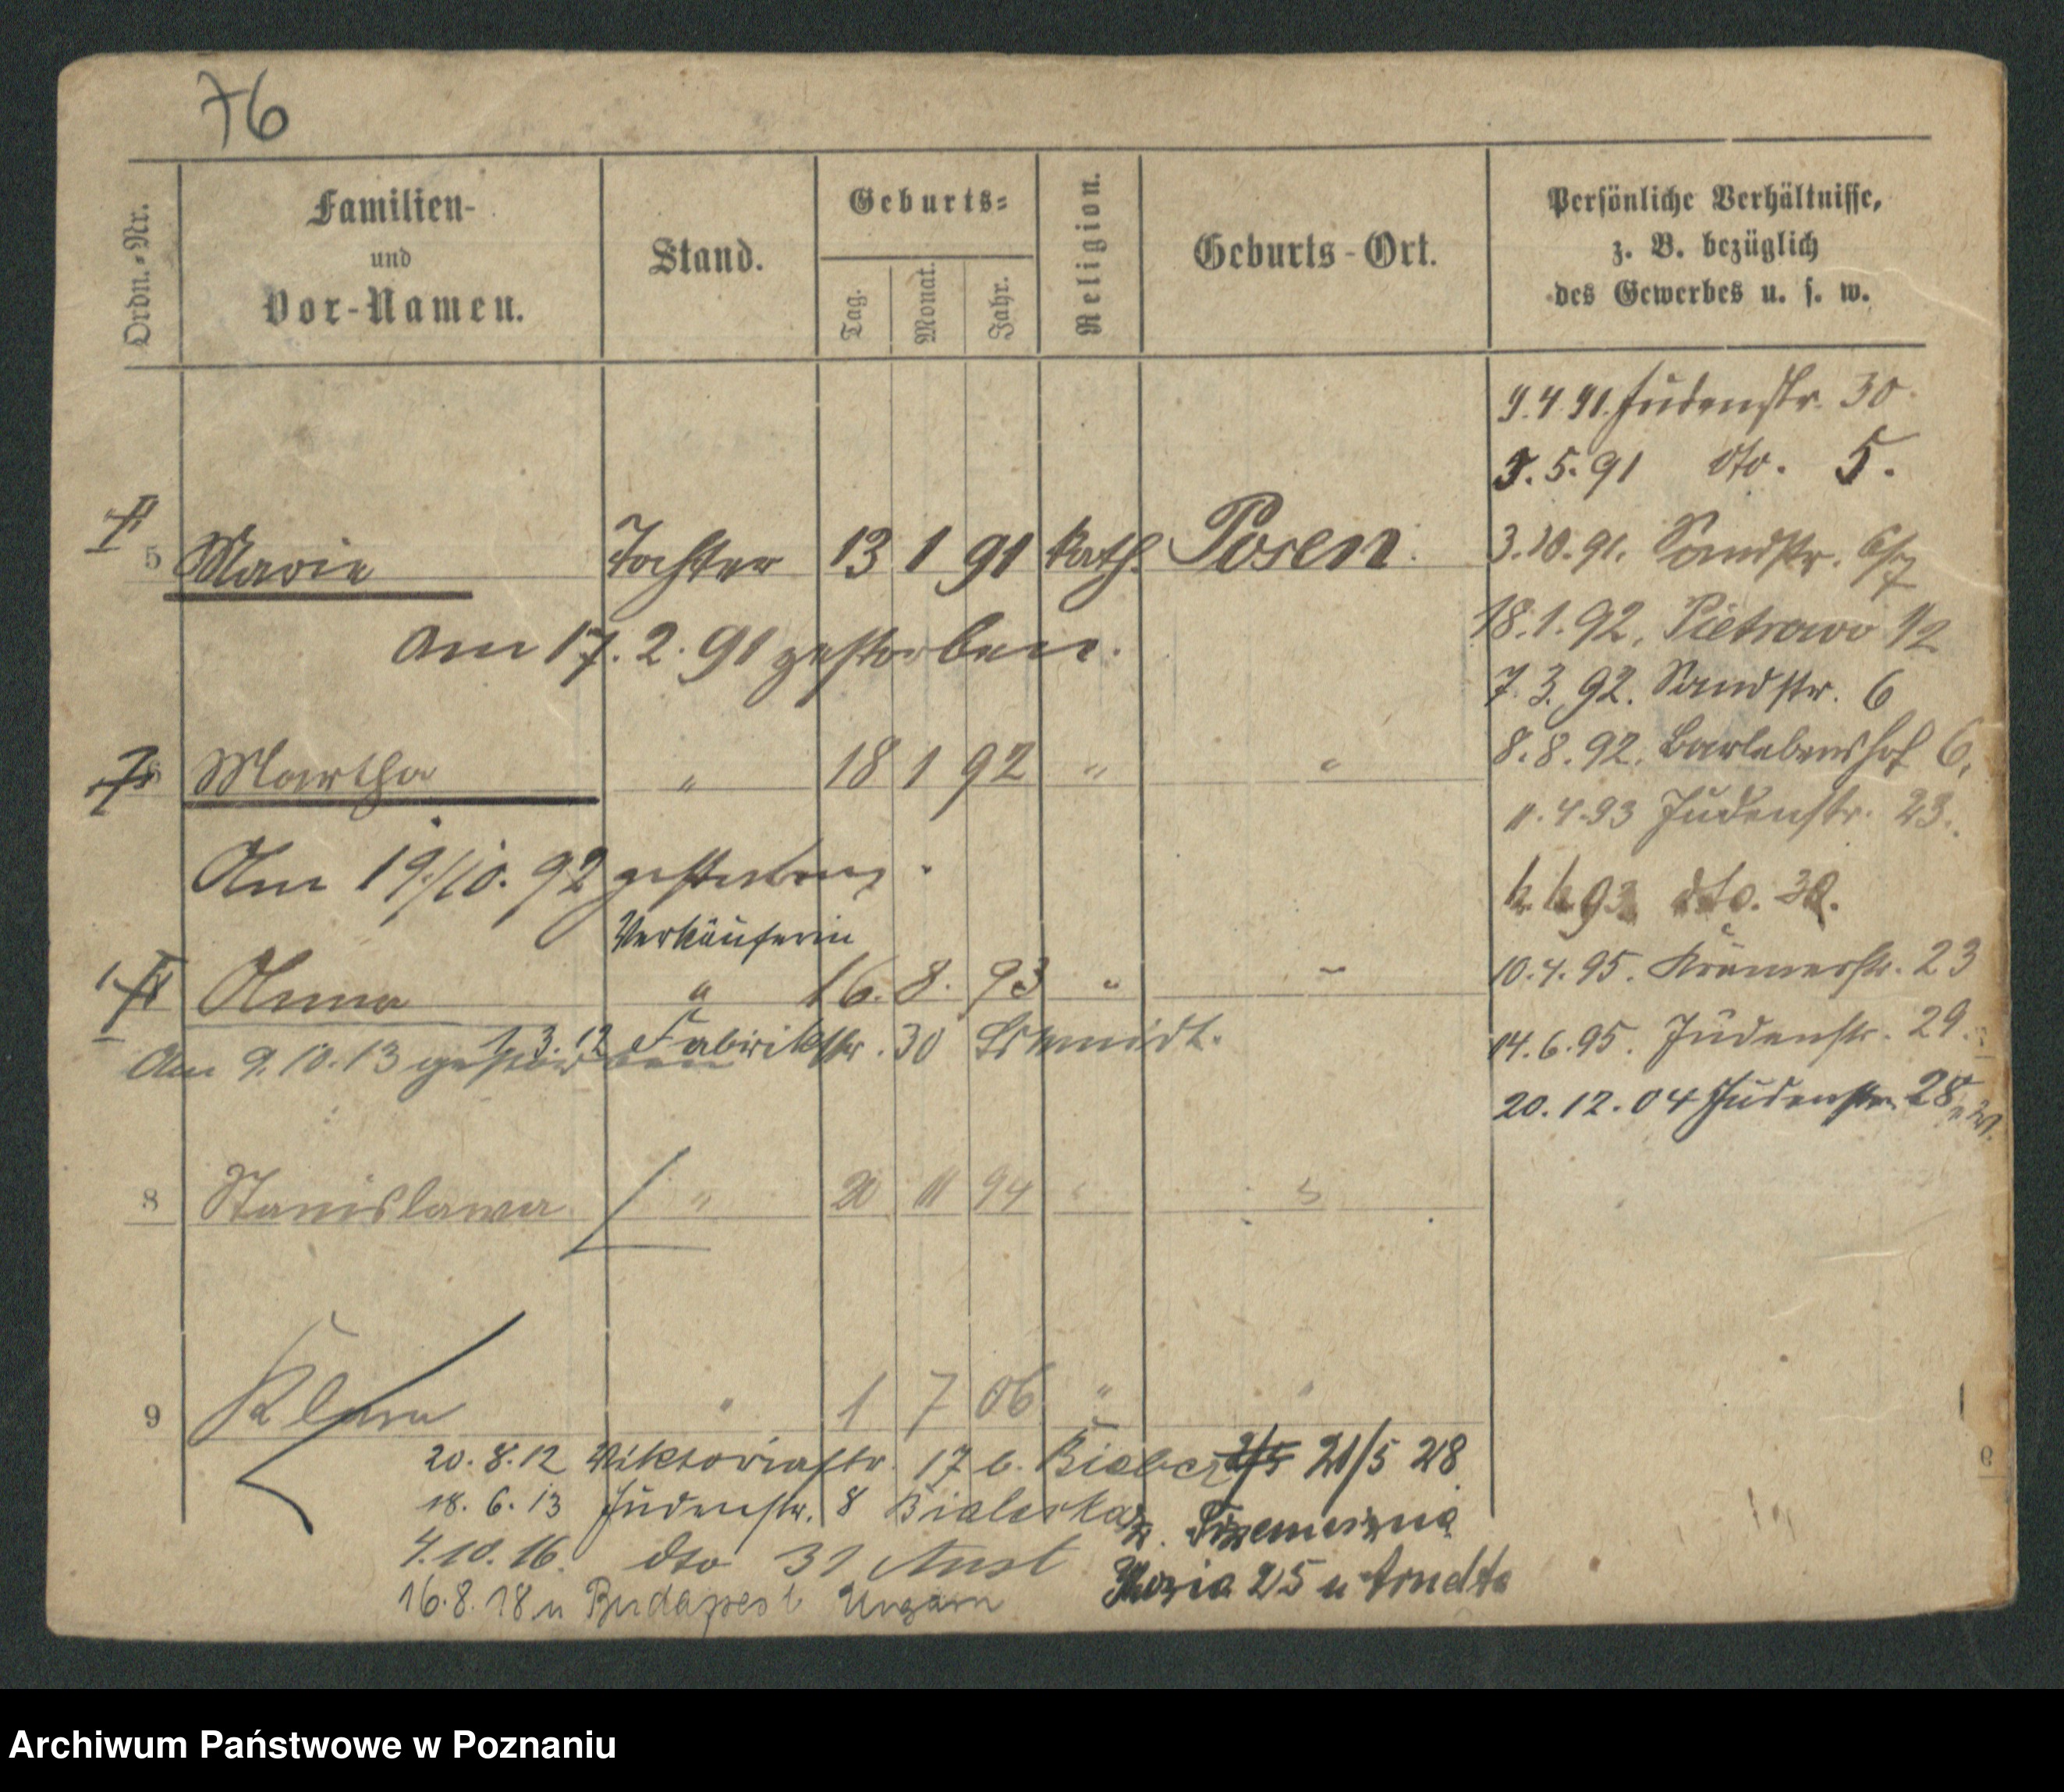 76
Ordn.-Nr.
Familien-
und
Vor-Namen.
Stand.
Geburts-
Tag.
Monat.
Jahr.
Religion.
Geburts-Ort.
Persönliche Verhältnisse,
z. B. bezüglich
des Gewerbes u. s. w.
9.4.91. Judenstr. 30.
5.5.91 dto. 5.
5 Marie Tochter 13 1 91 kath. Posen. 3.10.91. Sandstr. 6/7
am 17.2.91 gestorben. 18.1.92. Pietrowo 12
7.3.92. Sandstr. 6
8.8.92. Barlebenshof 6.
Martha " 18 1 92 " "
11.4.93 Judenstr. 23.
Am 19/10. 92 gestorben.
93 dto. 30.
Verkäuferin
Anna " 16. 8. 93 " " 10.4.95. Krämerstr. 23
1.3.12 Fabrikstr. 30 Schmidt.
Am 9.10.13 gestorben
14.6.95. Judenstr. 29.
20.12.04 Judenstr. 28
8 Stanislawa " 20 11 94 " "
9 Klara " 1 7 06 " "
20.8.12 Viktoriastr. 17 b. 21/5 28
18.6.13 Judenstr. 8 Bialeska
4.10.16. dto 31 Aust
16.8.18 n Budapest Ungarn
25 u Arndta
Archiwum Państwowe w Poznaniu